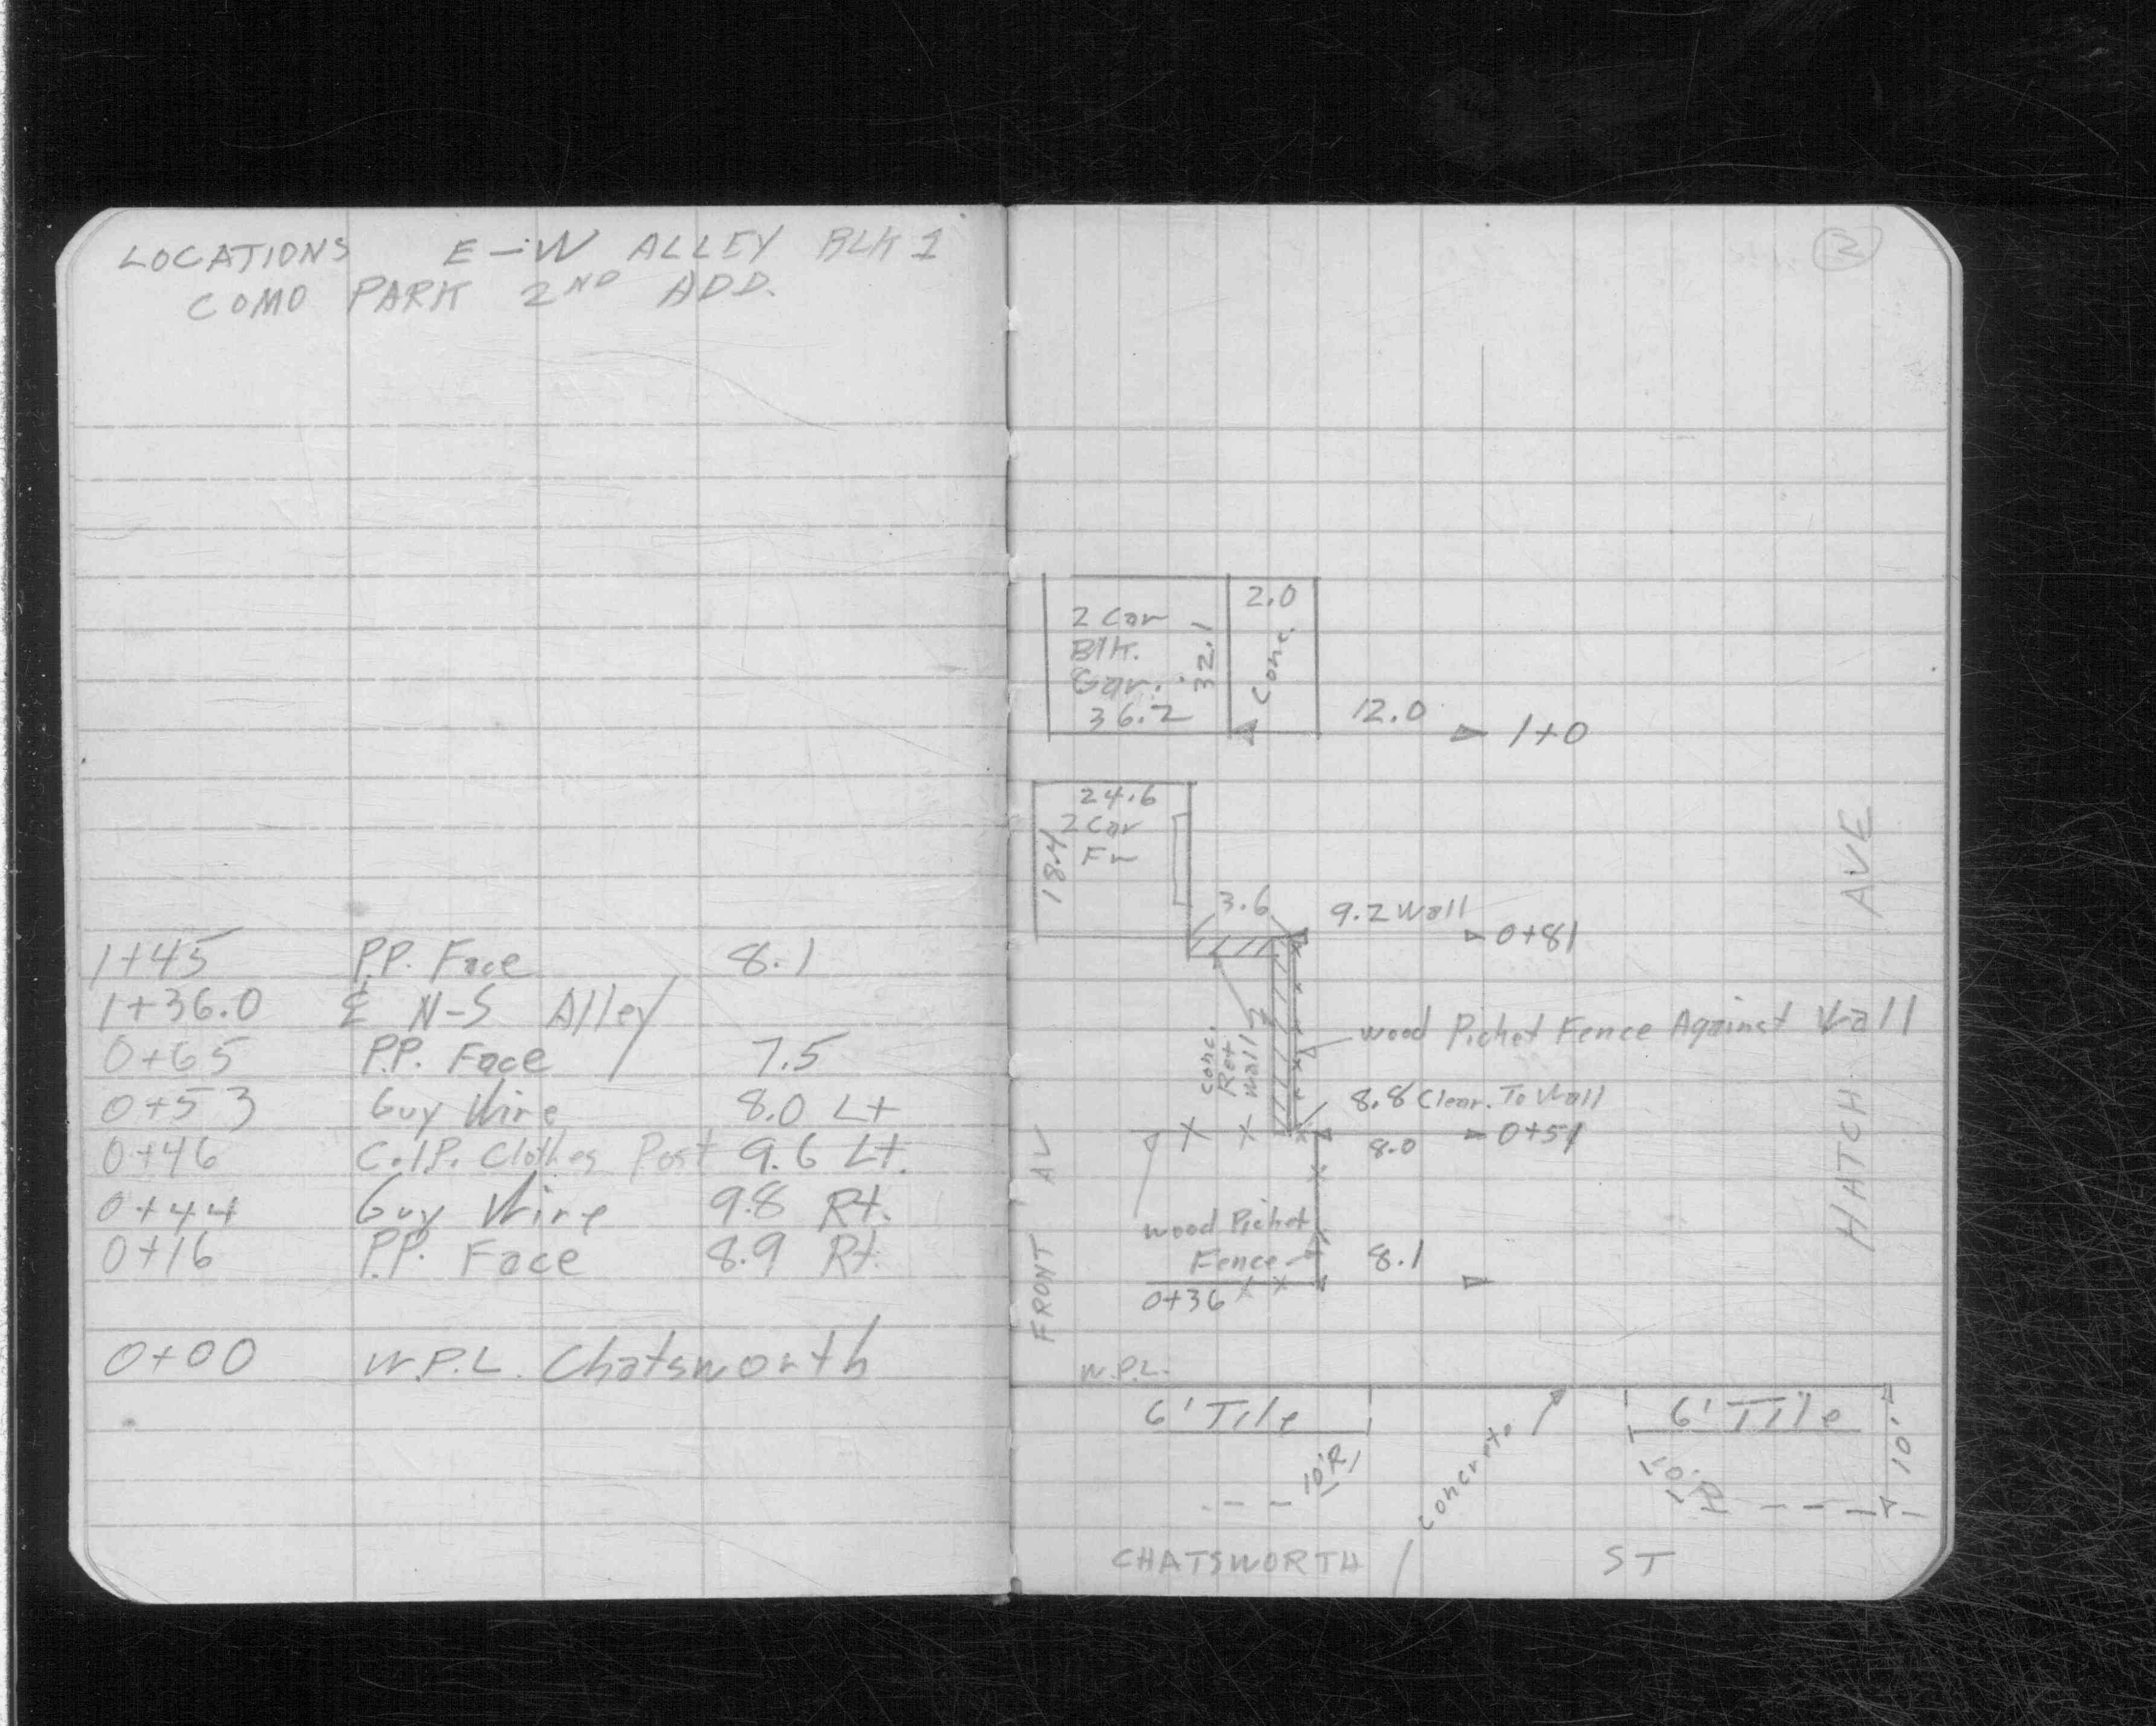 LOCATIONS E-W ALLEY BLK 1
COMO PARK 2ND ADD.
1+45 P.P. Face 8.1
1+36.0 ℄ N-S Alley
0+65 P.P. Face 7.5
0+53 Guy Wire 8.0 Lt
0+46 C.I.P. Clothes Post 9.6 Lt.
0+44 Guy Wire 9.8 Rt.
0+16 P.P. Face 8.9 Rt.
0+00 W.P.L. Chatsworth
3
2 Car
Blk.
Gar.
36.2
32.1
2.0
Conc.
12.0
1+0
24.6
2 Car
Fr
18.4
3.6
9.2 Wall
0+81
Conc.
Ret
Wall
Wood Picket Fence Against Wall
8.8 Clear. To Wall
8.0
0+51
Wood Picket
Fence
8.1
0+36
FRONT AV
HATCH AVE
W.P.L.
6' Tile
6' Tile
10'R
Concrete
10'R
10'
CHATSWORTH ST